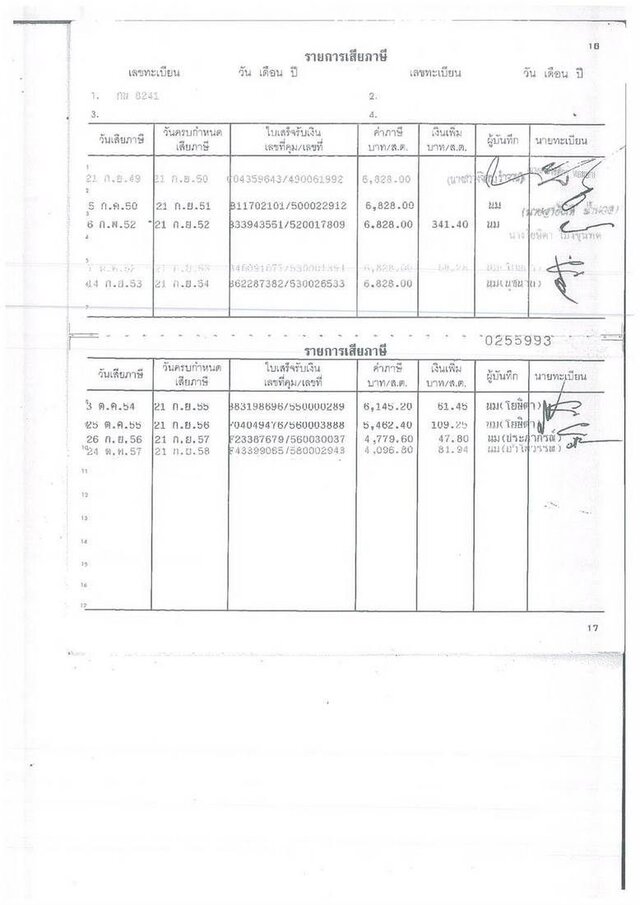 16
รายการเสียภาษี
เลขทะเบียน วัน เดือน ปี เลขทะเบียน วัน เดือน ปี
1. กม 8241 2.
3. 4.
วันเสียภาษี วันครบกำหนดเสียภาษี ใบเสร็จรับเงิน เลขที่คุม/เลขที่ ค่าภาษี บาท/ส.ต. เงินเพิ่ม บาท/ส.ต. ผู้บันทึก นายทะเบียน
1
21 ก.ย.49 21 ก.ย.50 004359643/490061992 6,828.00
2
5 ก.ค.50 21 ก.ย.51 B11702101/500022912 6,828.00 นม
6 ก.พ.52 21 ก.ย.52 833943551/520017809 6,828.00 341.40 นม
6,828.00
14 ก.ย.53 21 ก.ย.54 862287382/530026533 6,828.00
7
0255993
รายการเสียภาษี
วันเสียภาษี วันครบกำหนดเสียภาษี ใบเสร็จรับเงิน เลขที่คุม/เลขที่ ค่าภาษี บาท/ส.ต. เงินเพิ่ม บาท/ส.ต. ผู้บันทึก นายทะเบียน
3 ต.ค.54 21 ก.ย.55 883198696/550000289 6,145.20 61.45 นม(โยษิตา)
25 ต.ค.55 21 ก.ย.56 704049476/560003888 5,462.40 109.25 นม(โยษิตา)
26 ก.ย.56 21 ก.ย.57 F23387679/560030037 4,779.60 47.80 นม(ประภาภรณ์)
24 ต.ค.57 21 ก.ย.58 F43399065/580002943 4,096.80 81.94
11
12
13
14
15
16
17
17